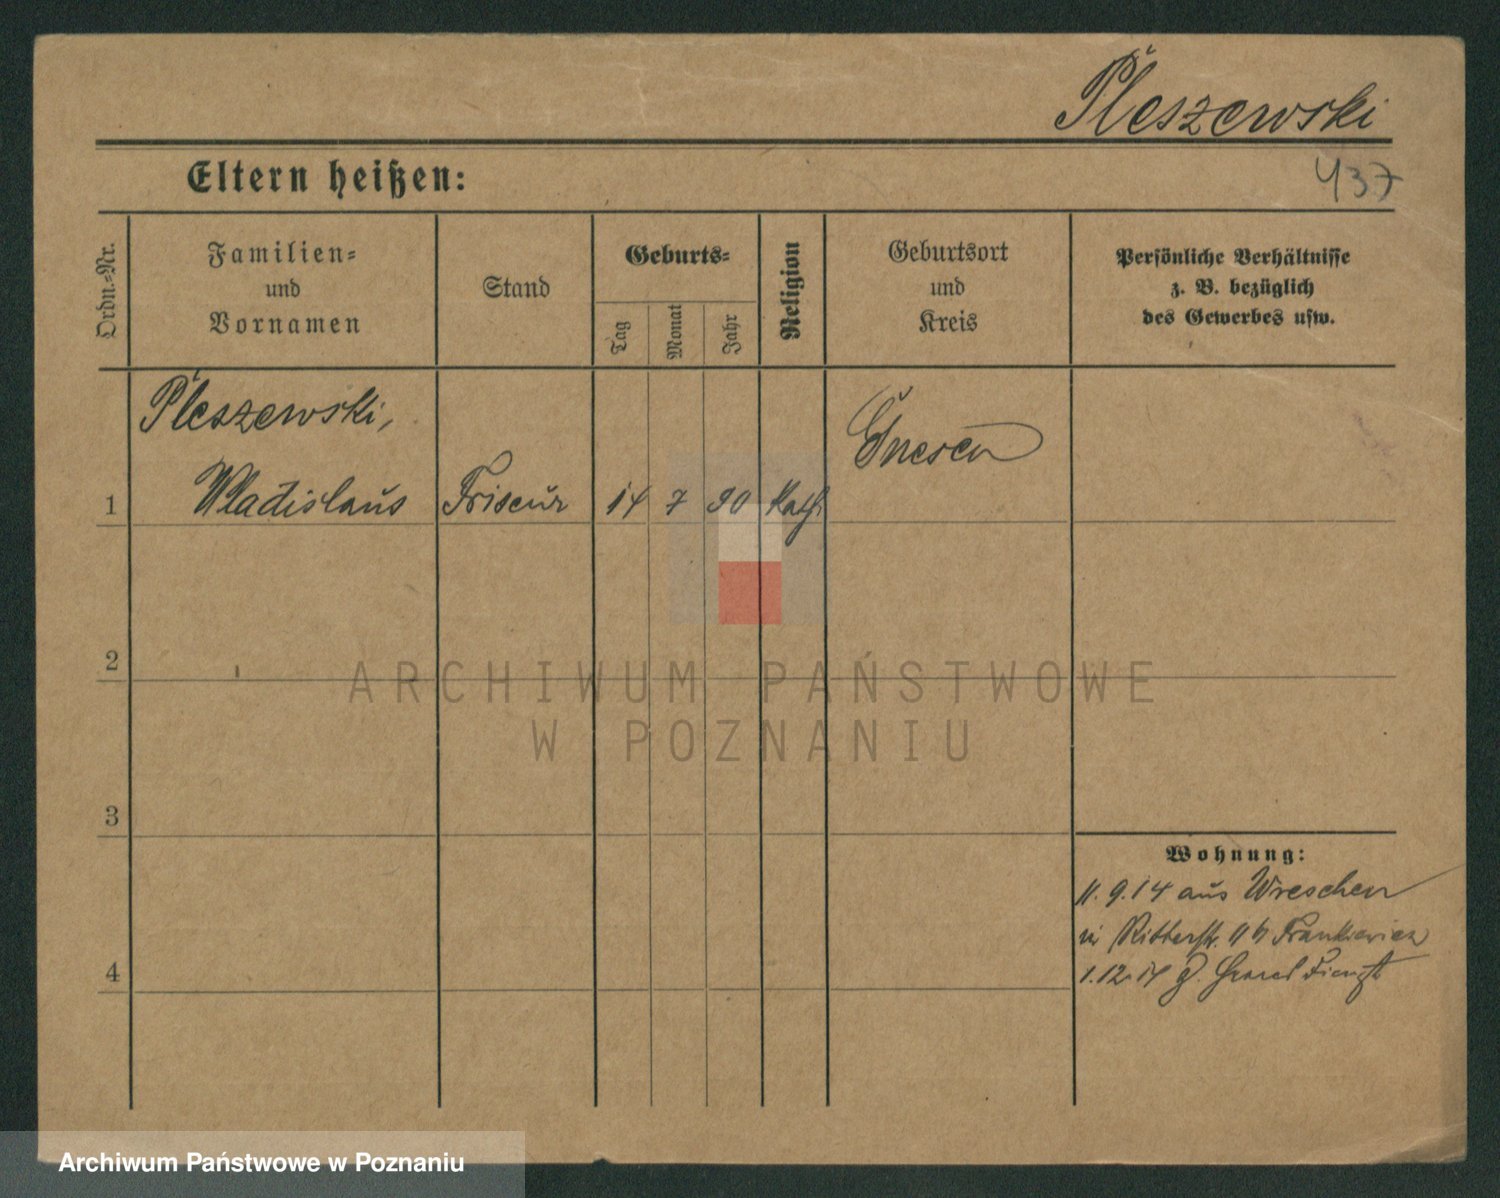 Pleszewski
437
Eltern heißen:
Ordn.=Nr.
Familien=
und
Vornamen
Stand
Geburts=
Tag
Monat
Jahr
Religion
Geburtsort
und
Kreis
Persönliche Verhältnisse
z. B. bezüglich
des Gewerbes usw.
Pleszewski,
Gnesen
1 Wladislaus Friseur 14 7 90 Kath.
2
3
4
Wohnung:
11.9.14 aus Wreschen
in Ritterstr. Frankiewicz
1.12.14
ARCHIWUM PAŃSTWOWE
W POZNANIU
Archiwum Państwowe w Poznaniu